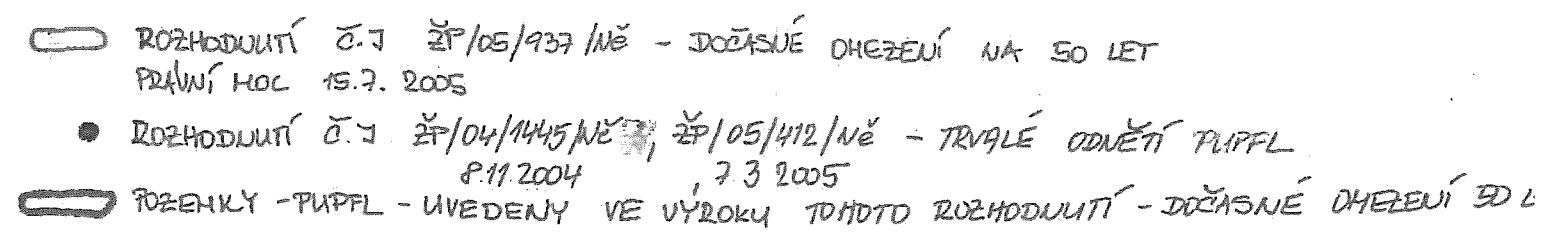 ROZHODNUTÍ Č.J ŽP/05/937/Ně - DOČASNÉ OMEZENÍ NA 50 LET
PRÁVNÍ MOC 15.7. 2005
ROZHODNUTÍ Č.J ŽP/04/1445/Ně, ŽP/05/412/Ně - TRVALÉ ODNĚTÍ PUPFL
8.11.2004 , 7 3 2005
POZEMKY - PUPFL - UVEDENY VE VÝROKU TOHOTO ROZHODNUTÍ - DOČASNÉ OMEZENÍ 50 L